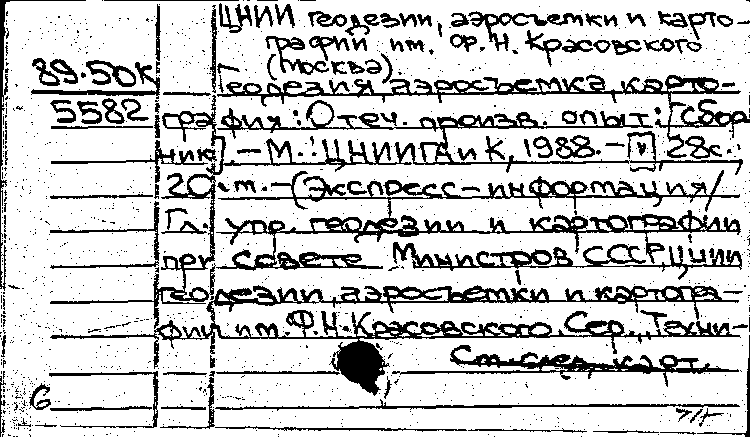 ЦНИИ геодезии, аэросъемки и карто-
графии им. Ф.Н. Красовского
(Москва)
89.50К
Геодезия, аэросъемка, карто-
5582
графия: Отеч. произв. опыт: [сбор
ник]. – М.: ЦНИИГАиК, 1988. – 28с.;
20см. – (Экспресс-информация/
Гл. упр. геодезии и картографии
при Совете Министров СССР, ЦНИИ
геодезии, аэросъемки и картогра-
фии им. Ф.Н. Красовского. Сер., Техни-
См. след. карт.
6